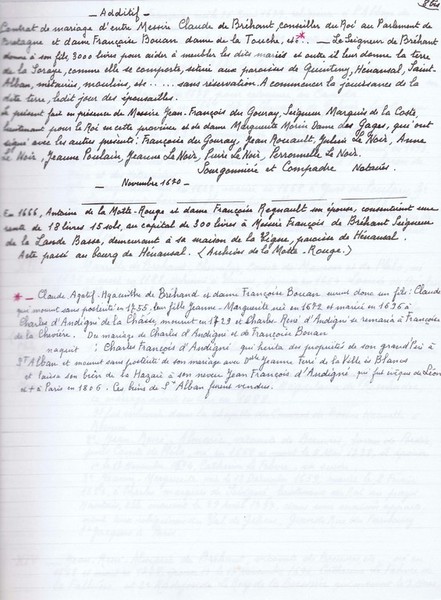 8 bis
_ Additif _
Contrat de mariage d'entre Messire Claude de Bréhant, conseiller du Roi au Parlement de
Bretagne et dame Françoise Bouan dame de la Touche, etc * _ Le Seigneur de Bréhant
donne à son fils, 3000 livres pour aider à meubler les dits mariés et outre il leur donne la terre
de la Soraye, comme elle se comporte, située aux paroisses de Quintiny, Hénansal, Saint-
Alban, métairies, moulins, etc ..... sans réservation. A commencer la jouissance de la
dite terre, le dit jour des épousailles.
Le présent fait en présence de Messire Jean-François du Gouray, Seigneur Marquis de la Coste,
lieutenant pour le Roi en cette province et de dame Marguerite Morin Dame des Gages, qui ont
signé avec les autres présents : Françoise du Gouray, Jean Rouault, Le Noir, Anne
Le Noir, Jeanne Poulain, Jeanne Le Noir, Le Noir, Perronnelle Le Noir.
Sougonnière et Compadre Notaires.
_ Novembre 1670 _
En 1666, Antoine de la Motte-Rouge et dame Françoise Regnault son épouse, consentirent une
rente de 18 livres 15 sols, au capital de 300 livres à Messire François de Bréhant Seigneur
de la Lande Basse, demeurant à sa maison de la Ligne, paroisse de Hénansal.
Acte passé au bourg de Hénansal. (Archives de la Motte-Rouge.)
* _ Claude Agatif-Hyacinthe de Bréhand et dame Françoise Bouan eurent donc un fils : Claude
qui mourut sans postérité en 1755. Leur fille Jeanne-Marguerite née en 1672 et mariée en 1695 à
Charles d'Andigné de la Chasse, mourut en 1729 et Charles René d'Andigné se remaria à Françoise
de la Chevière. Du mariage de Charles d'Andigné et de Françoise Bouan
naquent : Charles François d'Andigné qui hérita des propriétés de son grand'père à
St Alban et mourut sans postérité de son mariage avec Dlle Jeanne Ferré de la Ville ès Blancs
et laissa son bien de la Hazaie à son neveu Jean François d'Andigné, qui fut évêque de Léon
et + à Paris en 1806. Ces biens de St Alban furent vendus.